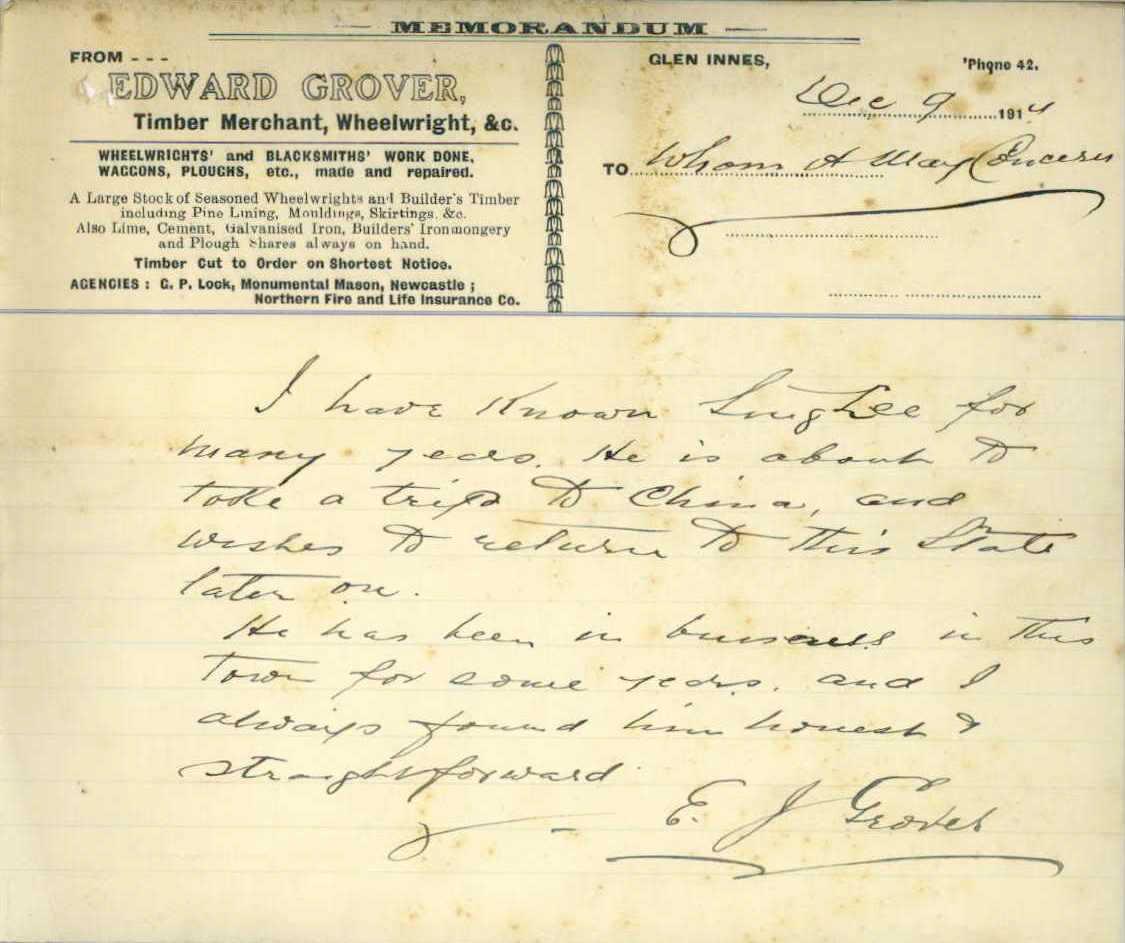 MEMORANDUM
FROM - - -
EDWARD GROVER,
Timber Merchant, Wheelwright, &c.
WHEELWRIGHTS' and BLACKSMITHS' WORK DONE,
WAGGONS, PLOUGHS, etc., made and repaired.
A Large Stock of Seasoned Wheelwrights and Builder's Timber
including Pine Lining, Mouldings, Skirtings, &c.
Also Lime, Cement, Galvanised Iron, Builders' Ironmongery
and Plough Shares always on hand.
Timber Cut to Order on Shortest Notice.
AGENCIES : G. P. Lock, Monumental Mason, Newcastle ;
Northern Fire and Life Insurance Co.
GLEN INNES,
'Phone 42.
Dec 9 1914
TO Whom it May Concern
I have known Sing Lee for
many years. He is about to
take a trip to China, and
wishes to return to this State
later on.
He has been in business in this
town for some years. and I
always found him honest &
straightforward
E. J Grover